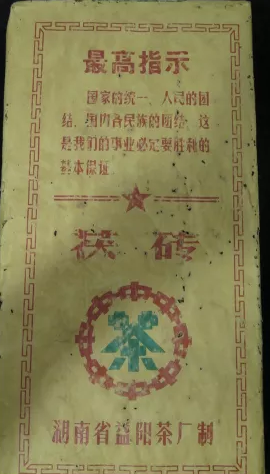 最高指示
国家的统一，人民的团
结，国内各民族的团结，这
是我们的事业必定要胜利的
基本保证
茯 砖
茶
湖南省益阳茶厂制